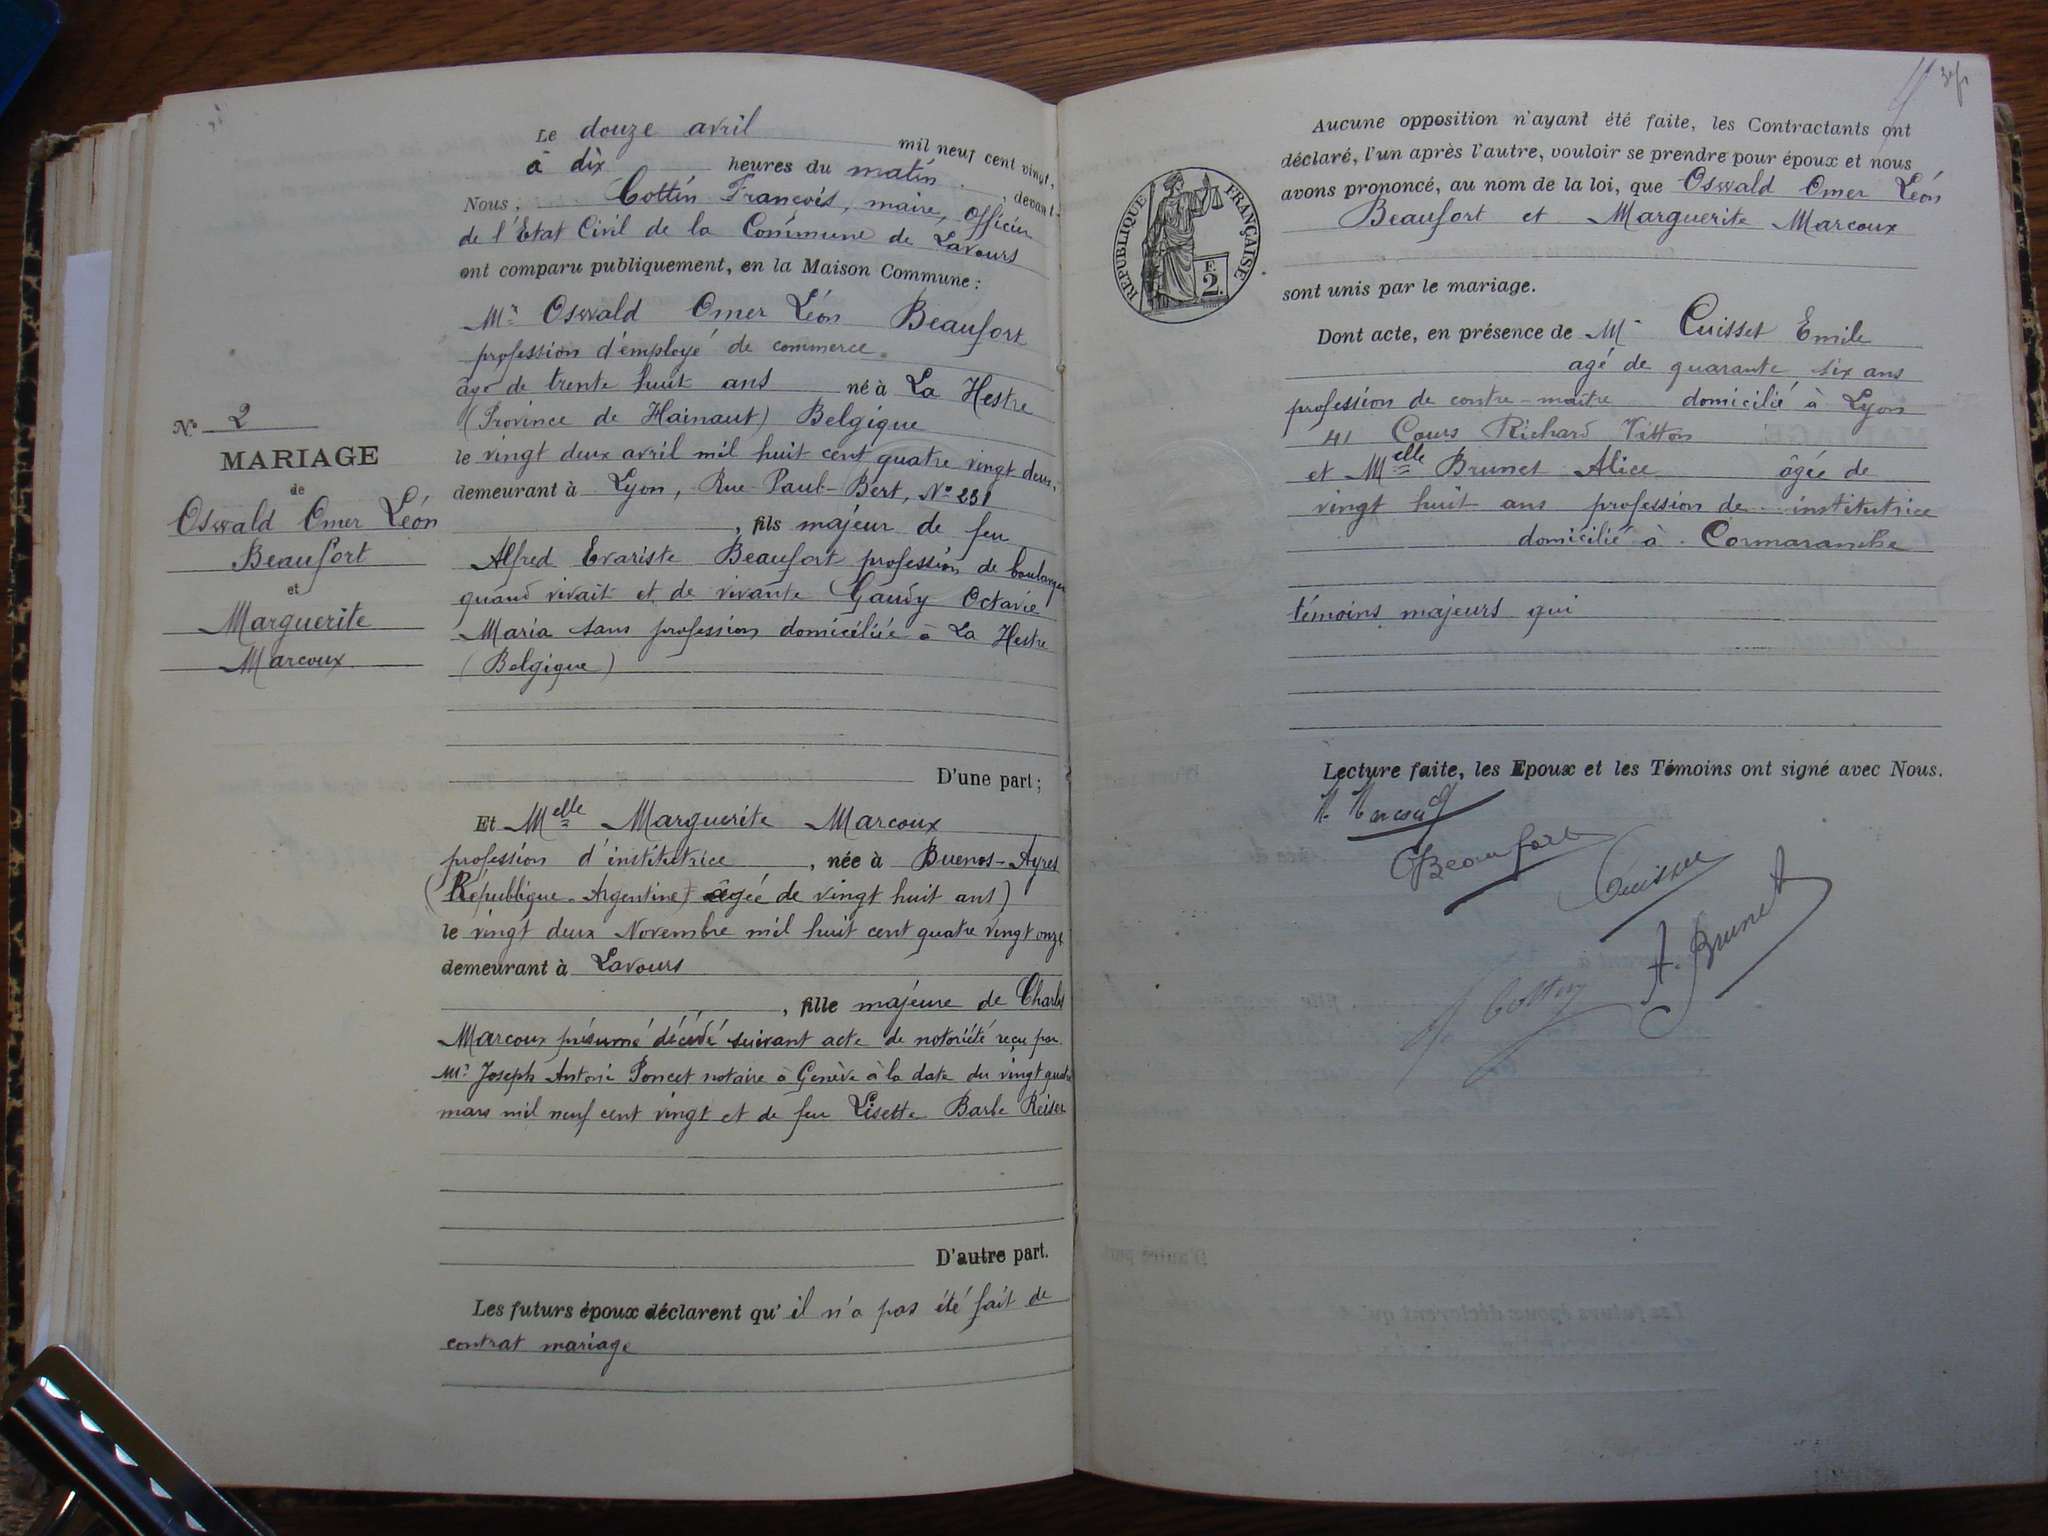 Le douze avril mil neuf cent vingt,
à dix heures du matin, devant
Nous, Cottin François, maire, officier
de l'État Civil de la Commune de Lavours
ont comparu publiquement, en la Maison Commune :
Mr Oswald Omer Léon Beaufort
profession d'employé de commerce.
âgé de trente huit ans né à La Hestre
(Province de Hainaut) Belgique
le vingt deux avril mil huit cent quatre vingt deux,
demeurant à Lyon, Rue Paul-Bert, No 231
, fils majeur de feu
Alfred Evariste Beaufort profession de boulanger
quand vivait et de vivante Gaudy Octavie
Maria sans profession domiciliée à La Hestre
(Belgique)
D'une part ;
No 2
MARIAGE
de
Oswald Omer Léon
Beaufort
et
Marguerite
Marcoux
Et Melle Marguerite Marcoux
profession d'institutrice, née à Buenos-Ayres
(République Argentine) âgée de vingt huit ans)
le vingt deux Novembre mil huit cent quatre vingt onze
demeurant à Lavours
, fille majeure de Charles
Marcoux présumé décédé suivant acte de notoriété reçu par
Mr Joseph Antoine Poncet notaire à Genève à la date du vingt quatre
mars mil neuf cent vingt et de feu Lisette Barbe Reiser
D'autre part.
Les futurs époux déclarent qu'il n'a pas été fait de
contrat mariage
RÉPUBLIQUE FRANÇAISE
F.
2.
Aucune opposition n'ayant été faite, les Contractants ont
déclaré, l'un après l'autre, vouloir se prendre pour époux et nous
avons prononcé, au nom de la loi, que Oswald Omer Léon
Beaufort et Marguerite Marcoux
sont unis par le mariage.
Dont acte, en présence de Mr Cuisset Emile
agé de quarante six ans
profession de contre-maître domicilié à Lyon
41 Cours Richard Vitton
et Melle Brunet Alice âgée de
vingt huit ans profession de institutrice
domicilié à Cormaranche
témoins majeurs qui
Lecture faite, les Epoux et les Témoins ont signé avec Nous.
M. Marcoux
OBeaufort
Cuisset
A. Brunet
Cottin